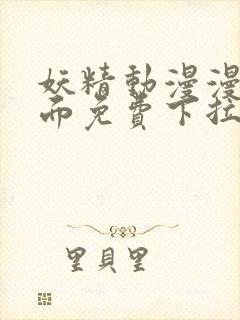 妖精動漫漫
而免費下拉
里貝里